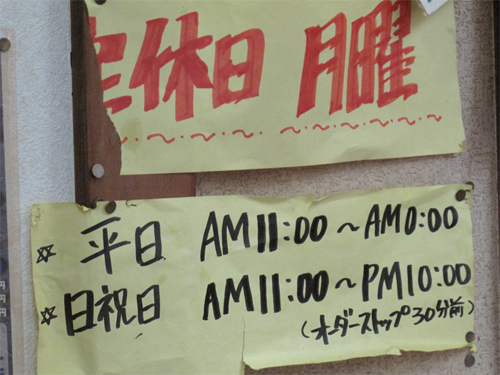 定休日 月曜
☆ 平日 AM11:00〜AM0:00
☆ 日祝日 AM11:00〜PM10:00
(オーダーストップ30分前)